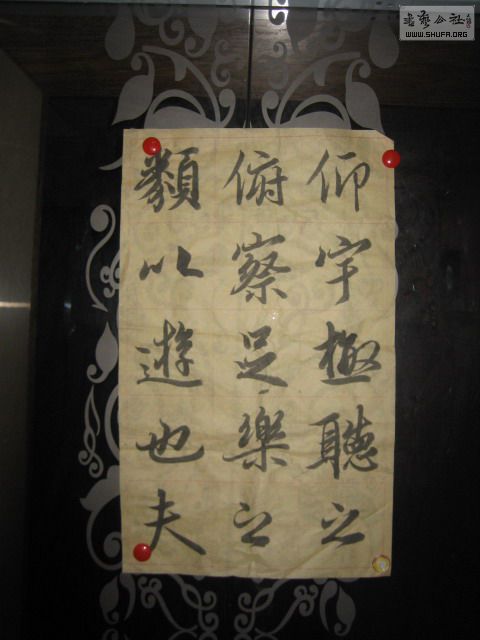 仰宇極聽之
俯察足樂之
類以遊也夫
書藝公社
WWW.SHUFA.ORG